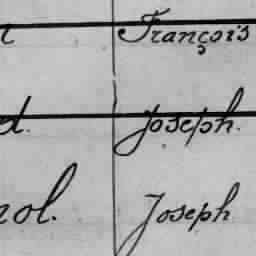 François
d. Joseph.
nol. Joseph